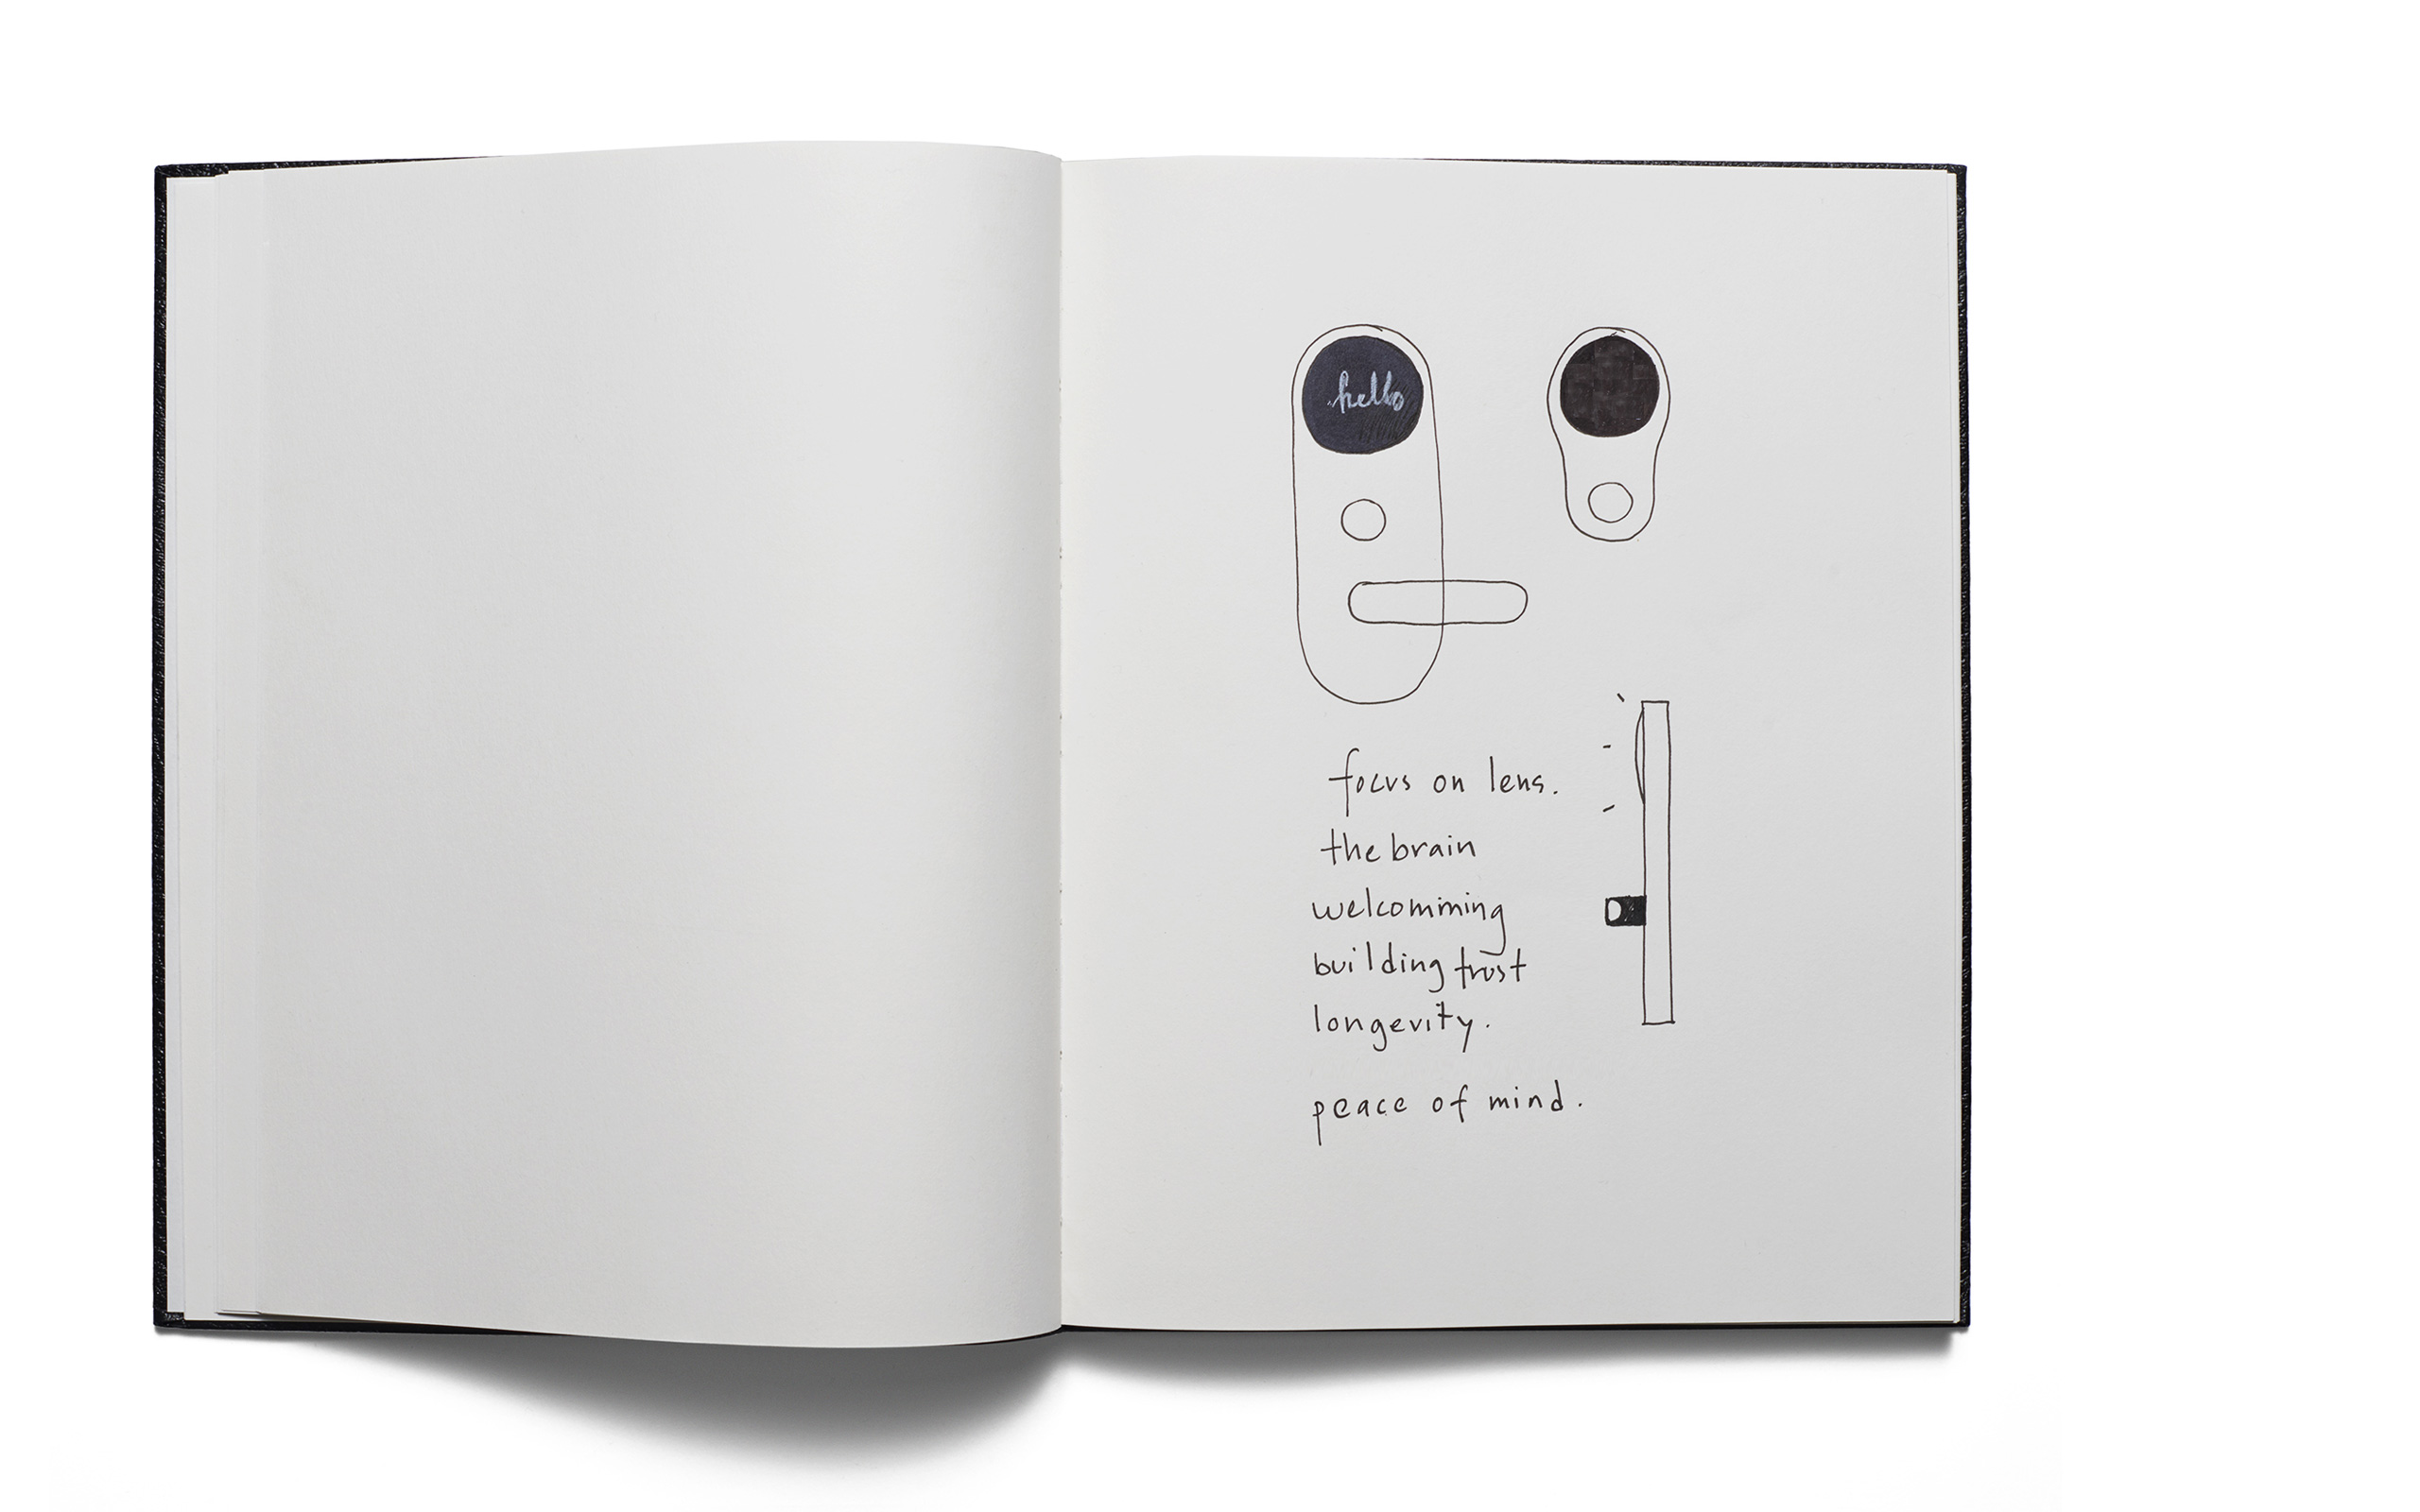 hello
focus on lens.
the brain
welcomming
building trust
longevity.
peace of mind.